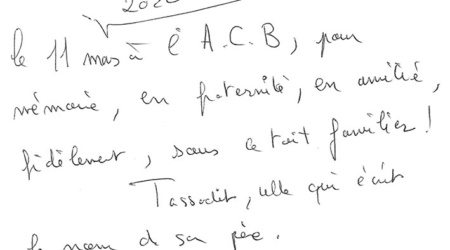 le 11 mars à l'A.C.B, pour
mémoire, en fraternité, en amitié,
fidèlement, sous ce toit familier !
Tassadit, celle qui écrit
le nom de son père.